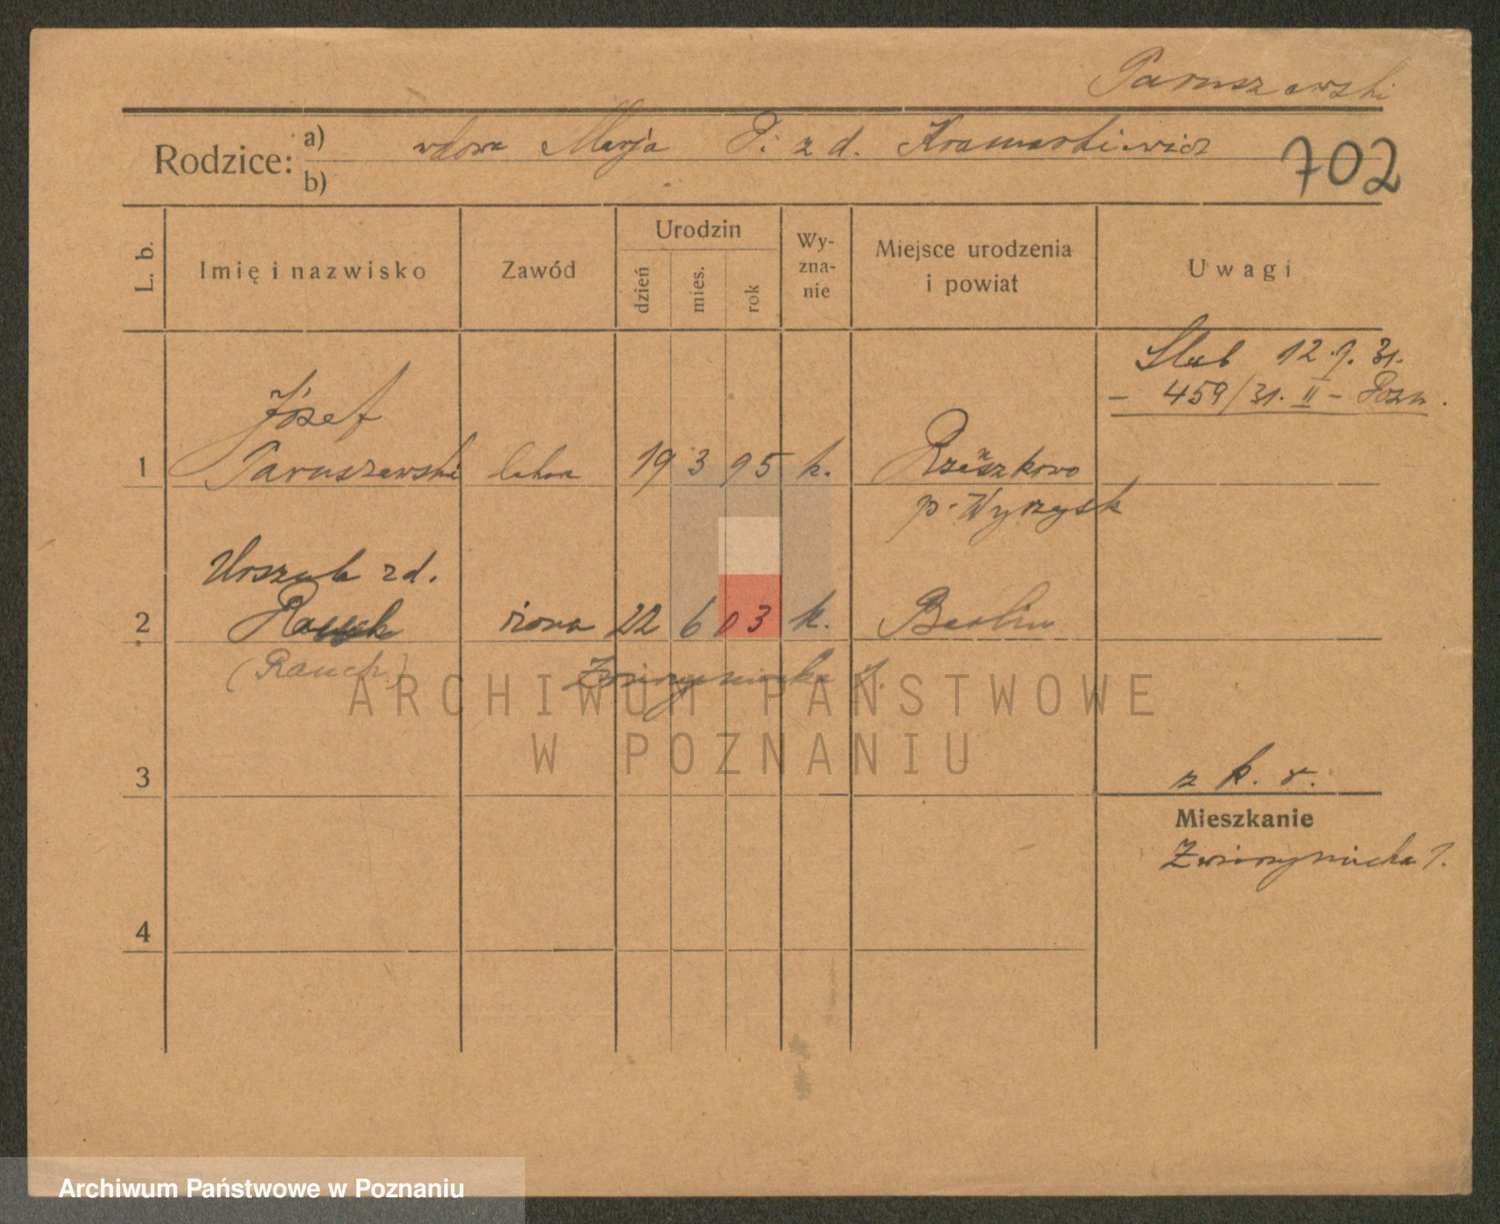 Paruszewski
Rodzice: a) wdowa Marja P. z d. Kramarkiewicz
b)
702
L. b.
Imię i nazwisko
Zawód
Urodzin
dzień
mies.
rok
Wy-
zna-
nie
Miejsce urodzenia
i powiat
Uwagi
Ślub 12.9.31.
– 459/31. II – Pozn.
Józef
1 Paruszewski 19 3 95 k.
p. Wyrzysk
Urszula z d.
2 Rauch żona 22 6 03 k. Berlin
(Rauch) Zwierzyniecka 7.
3
z k. r.
Mieszkanie
Zwierzyniecka 7.
4
ARCHIWUM PAŃSTWOWE
W POZNANIU
Archiwum Państwowe w Poznaniu